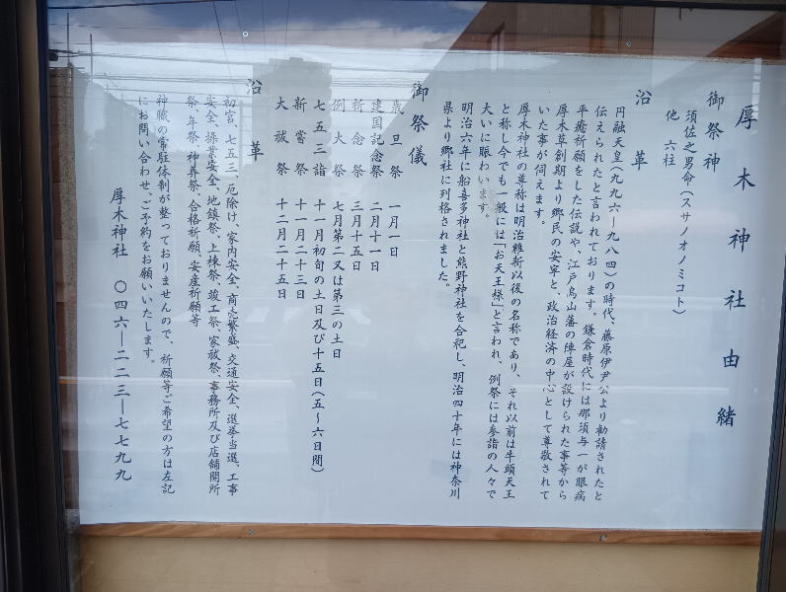 厚木神社由緒
御祭神
須佐之男命(スサノオノミコト)
他 六柱
沿革
円融天皇(九九六―九八四)の時代、藤原伊尹公より勧請されたと
伝えられたと言われております。鎌倉時代には那須与一が眼病
平癒祈願をした伝説や、江戸烏山藩の陣屋が設けられた事等から
厚木草創期より郷民の安寧と、政治経済の中心として尊敬されて
いた事が伺えます。
厚木神社の尊称は明治維新以後の名称であり、それ以前は牛頭天王
と称し今でも一般には「お天王様」と言われ、例祭には参詣の人々で
大いに賑わいます。
明治六年に船喜多神社と熊野神社を合祀し、明治四十年には神奈川
県より郷社に列格されました。
御祭儀
歳旦祭 一月一日
建国記念祭 二月十一日
祈念祭 三月十五日
例大祭 七月第二又は第三の土日
七五三詣 十一月初旬の土日及び十五日(五~六日間)
新嘗祭 十一月二十三日
大祓祭 十二月二十五日
沿革
初宮、七五三、厄除け、家内安全、商売繁盛、交通安全、選挙当選、工事
安全、操業安全、地鎮祭、上棟祭、竣工祭、家祓祭、事務所及び店舗開所
祭、年祭、神葬祭、合格祈願、安産祈願等
神職の常駐体制が整っておりませんので、祈願等ご希望の方は左記
にお問い合わせ、ご予約をお願いいたします。
厚木神社 〇四六―二二三―七七九九